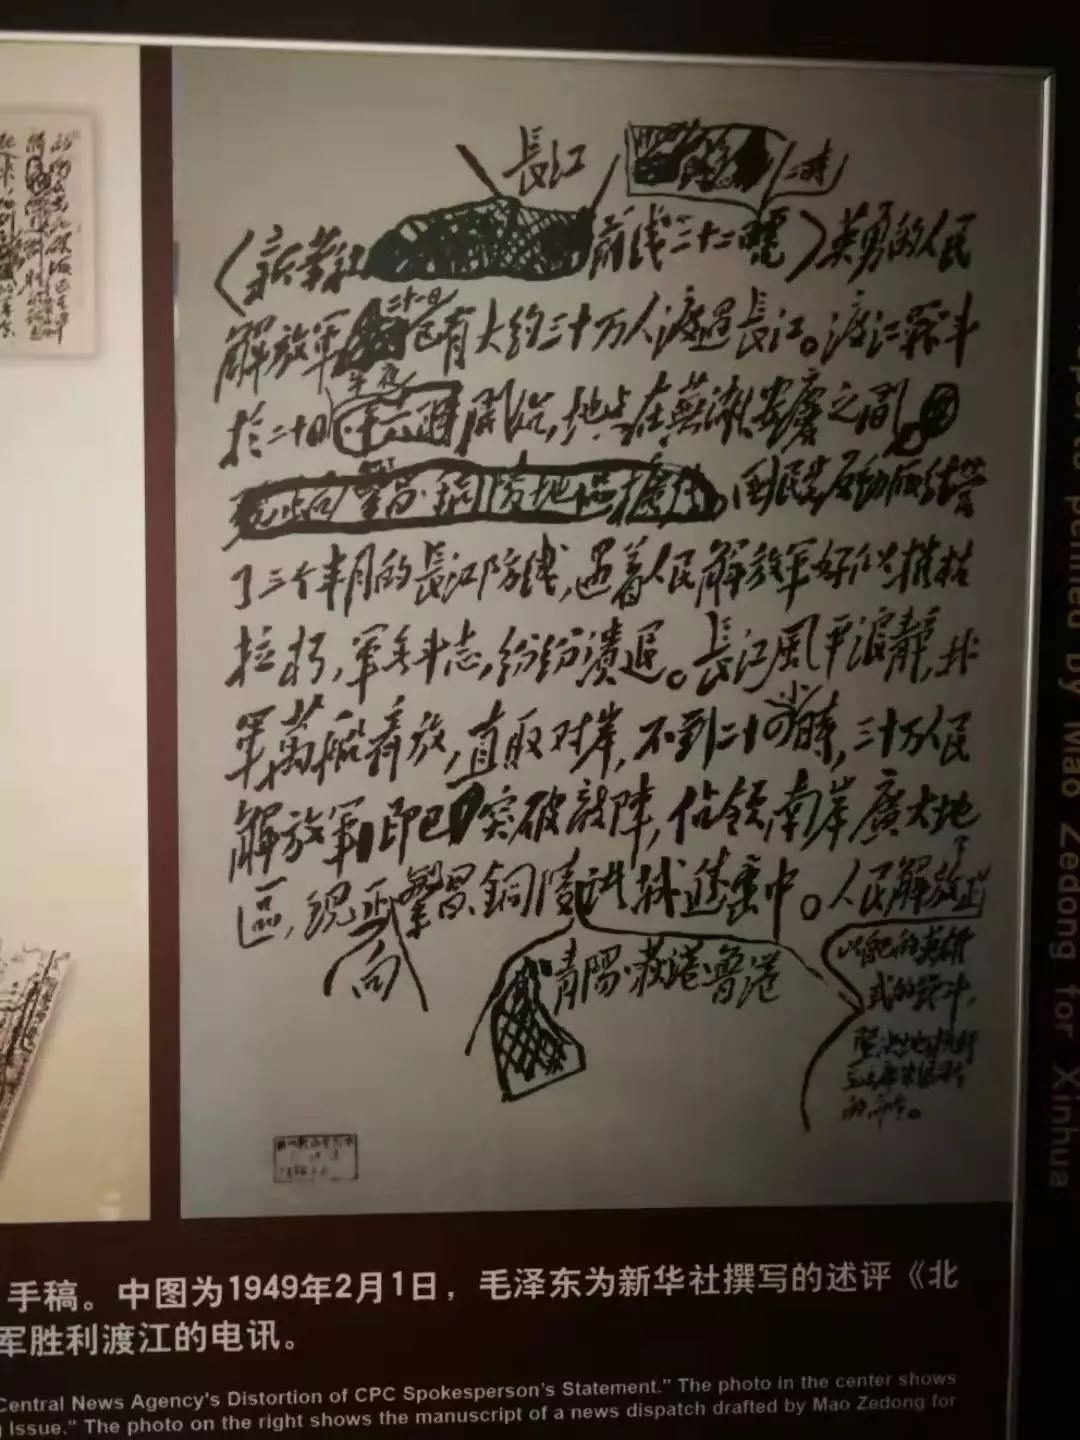 長江
二時
(新華社前线二十二電)英勇的人民
解放军二十一日已有大约三十万人渡过長江。渡江戰斗
於二十日午夜開始,地点在蕪湖、安慶之間
繁昌、銅陵地區擴大。國民党反動派经营
了三个半月的長江防线,遇着人民解放军好似摧枯
拉朽,軍無斗志,纷纷潰退。長江風平浪靜,我
軍萬船齐放,直取对岸,不到二十四小時,三十万人民
解放軍即已突破敌陣,佔领南岸廣大地
區,现正向繁昌、銅陵、青陽、荻港、鲁港諸城進擊中。人民解放军正
以自己的英雄
式的战斗,
坚决地执行
毛主席朱總司令
的命令。
手稿。中图为1949年2月1日，毛泽东为新华社撰写的述评《北
军胜利渡江的电讯。
Central News Agency's Distortion of CPC Spokesperson's Statement." The photo in the center shows
Issue." The photo on the right shows the manuscript of a news dispatch drafted by Mao Zedong for
penned by Mao Zedong for Xinhua